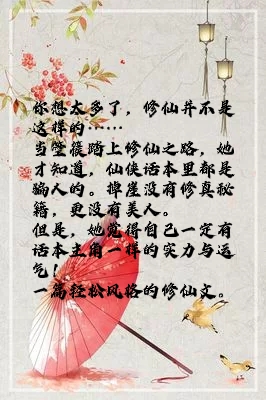 你想太多了，修仙并不是
这样的……
当箜篌踏上修仙之路，她
才知道，仙侠话本里都是
骗人的。掉崖没有修真秘
籍，更没有美人。
但是，她觉得自己一定有
话本主角一样的实力与运
气！
一篇轻松风格的修仙文。